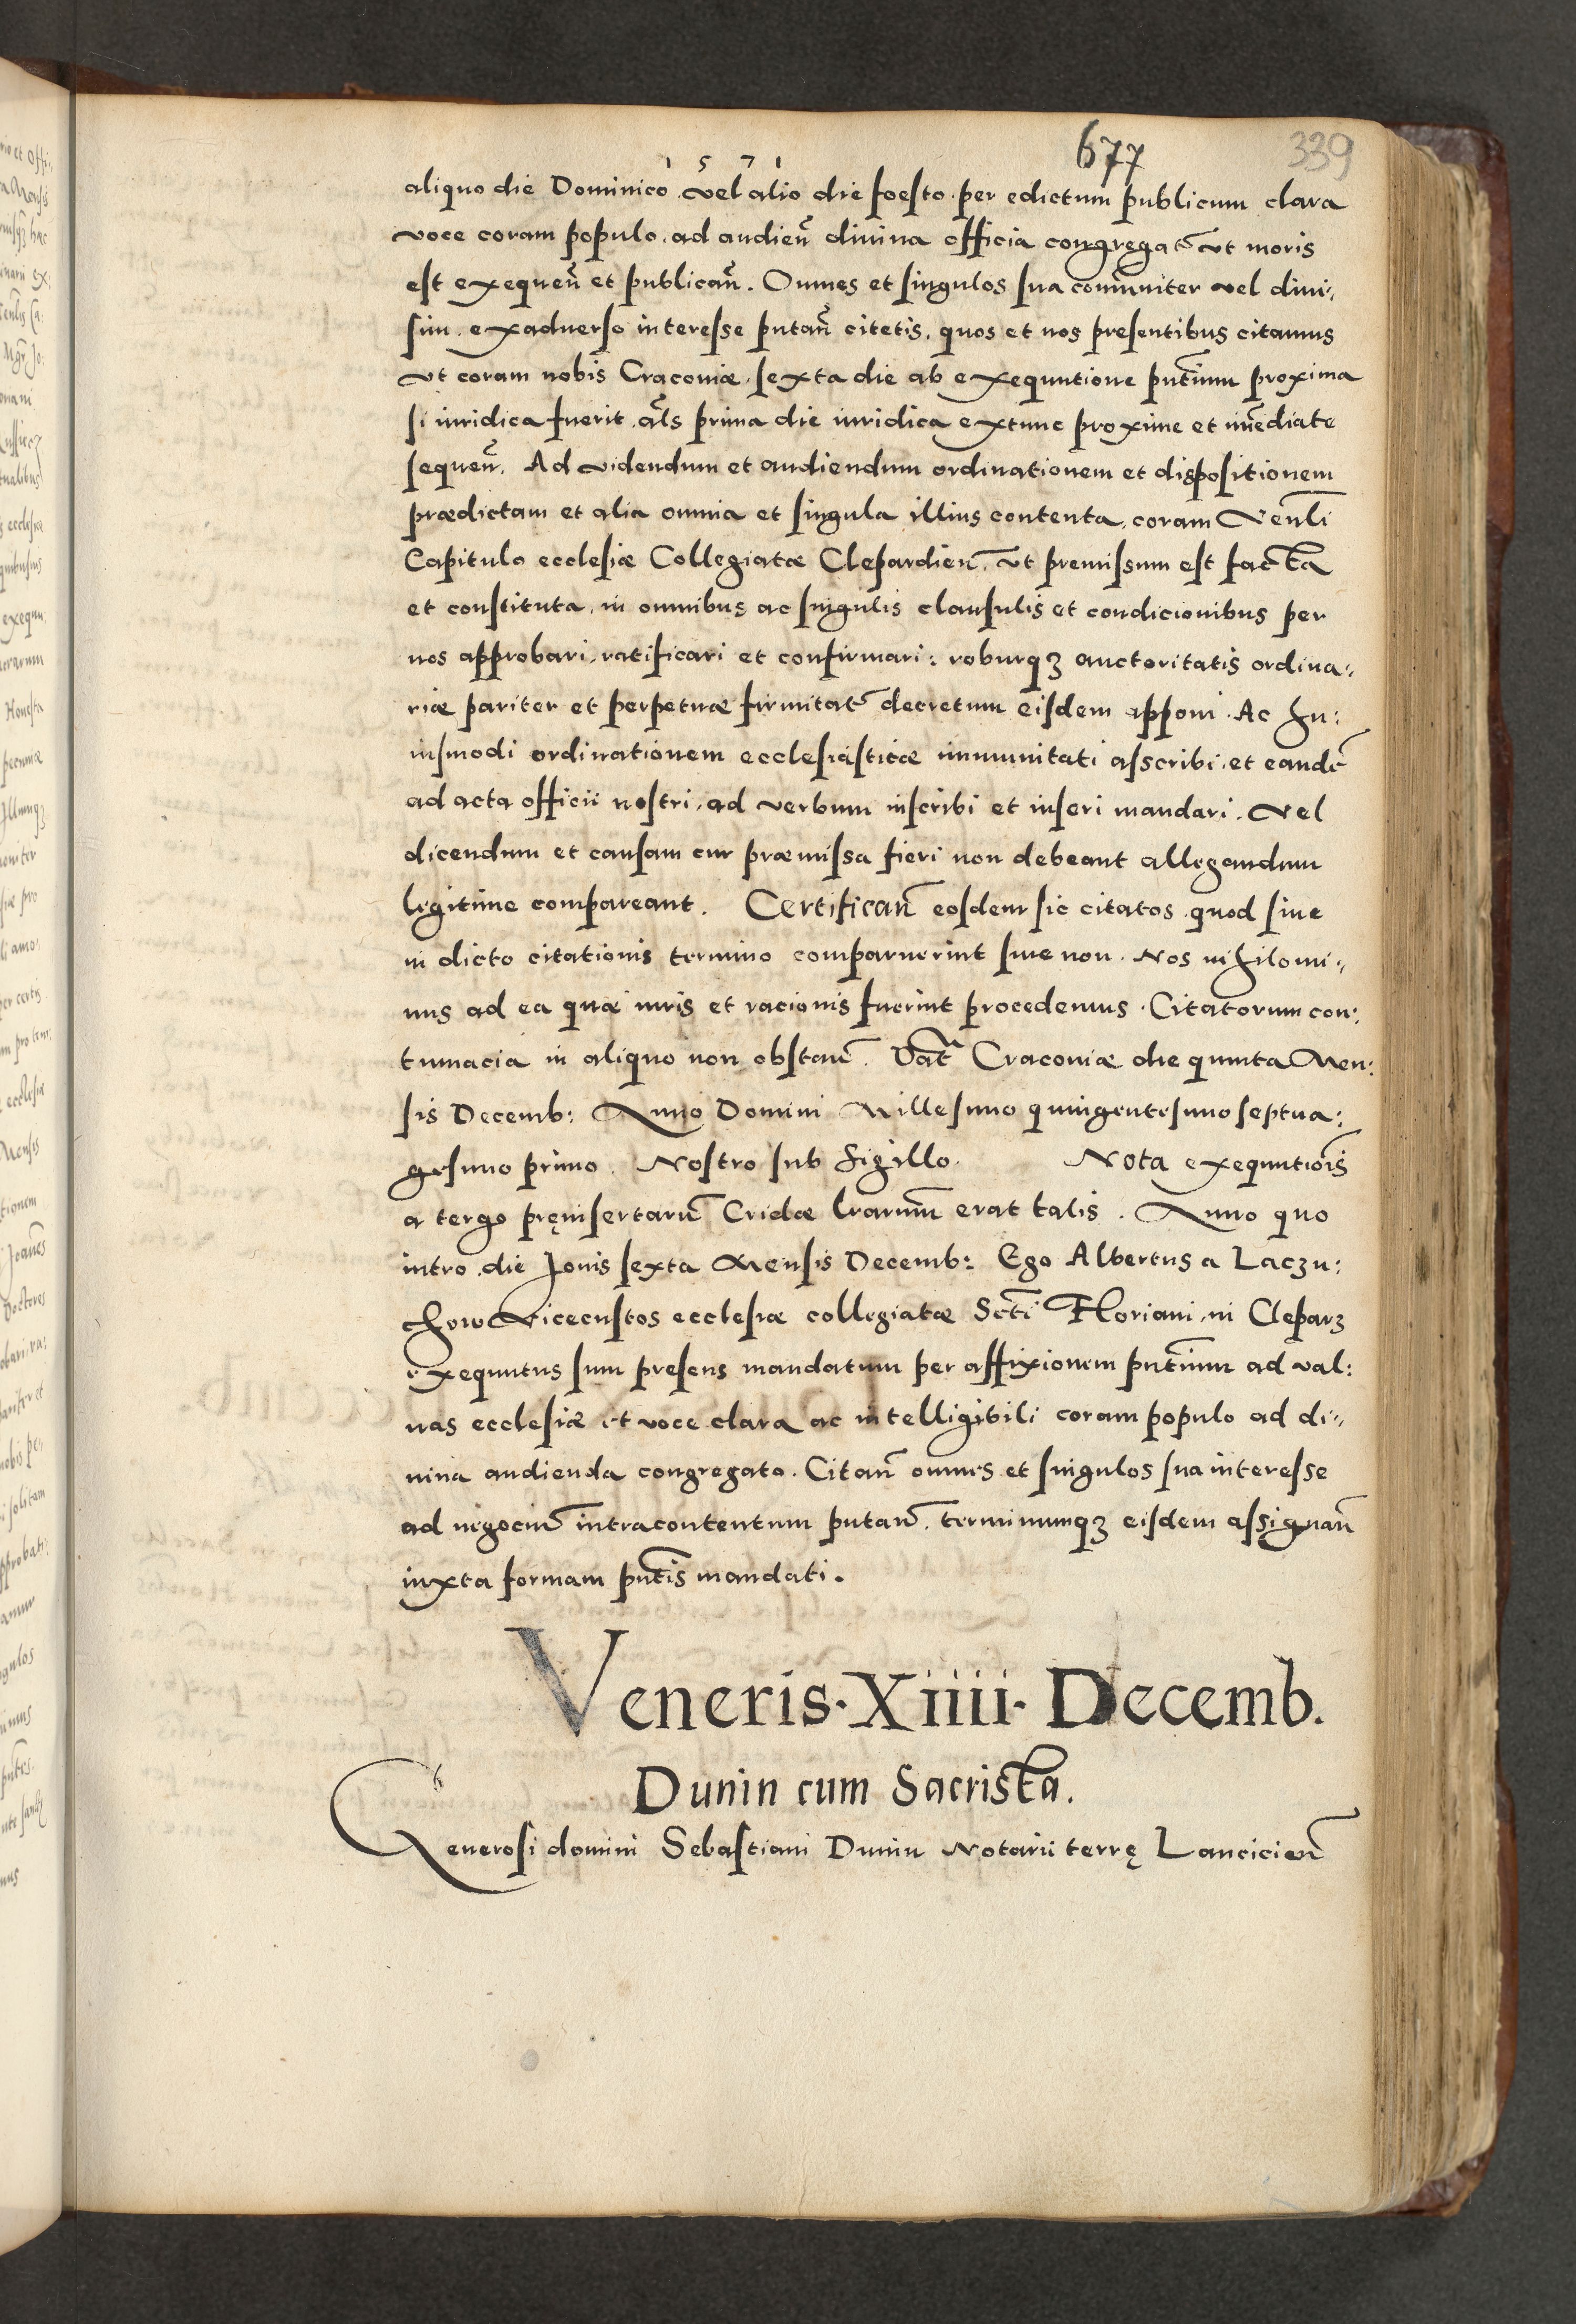 677 339
1571
aliquo die Dominico vel alio die foesto per edictum publicum clara
voce coram populo, ad audieñ diuina officia congregat̃ ut moris
est exequeñ et publicañ. Omnes et singulos sua com̃uniter vel diui„
sim exaduerso interesse putañ citetis, quos et nos presentibus citamus
vt coram nobis Cracoviæ, sexta die ab exequutione pñtium proxima
si iuridica fuerit, al̃s prima die iuridica extunc proxime et im̃ediate
sequeñ. Ad videndum et audiendum ordinationem et dispositionem
prædictam et alia omnia et singula illius contenta, coram Venl̃i
Capitulo ecclesiæ Collegiatæ Clepardieñ, vt premissum est facta
et constituta, in omnibus ac singulis clausulis et condicionibus per
nos approbari, ratificari et confirmari: roburqꝫ auctoritatis ordina„
riæ pariter et perpetuæ firmitat̃ decretum eisdem apponi. Ac hu:
iusmodi ordinationem ecclesiasticæ immunitati asscribi, et eandẽ
ad acta officii nostri, ad verbum inscribi et inseri mandari. Vel
dicendum et causam cur præmissa fieri non debeant allegandum
legitime compareant. Certificañ eosdem sic citatos quod siue
in dicto citationis termino comparuerint siue non. Nos nihilomi„
nus ad ea quæ iuris et racionis fuerint procedemus. Citatorum con:
tumacia in aliquo non obstañ. Dat̃ Cracoviæ die quinta Men:
sis Decemb: Anno Domini Millesimo quingentesimo septua:
gesimo primo. Nostro sub sigillo. Nota exequutiõis
a tergo pręinsertarũ Cridæ lrarum̃ erat talis. Anno quo
intro die Jouis sexta Mensis Decemb: Ego Albertus a Laczu:
chow Vicecustos ecclesiæ collegiatæ Sct̃i Floriani in Cleparz
exequutus sum presens mandatum per affixionem pñtium ad val:
uas ecclesiæ et voce clara ac intelligibili coram populo ad di„
uina audienda congregato. Citañ omnes et singulos sua interesse
ad negociũ intracontentum putañ, terminumqꝫ eisdem assignañ
iuxta formam pñtis mandati.
Veneris. Xiiii. Decemb.
Dunin cum Sacrista.
Generosi domini Sebastiani Dunin Notarii terrę Lanciciеñ